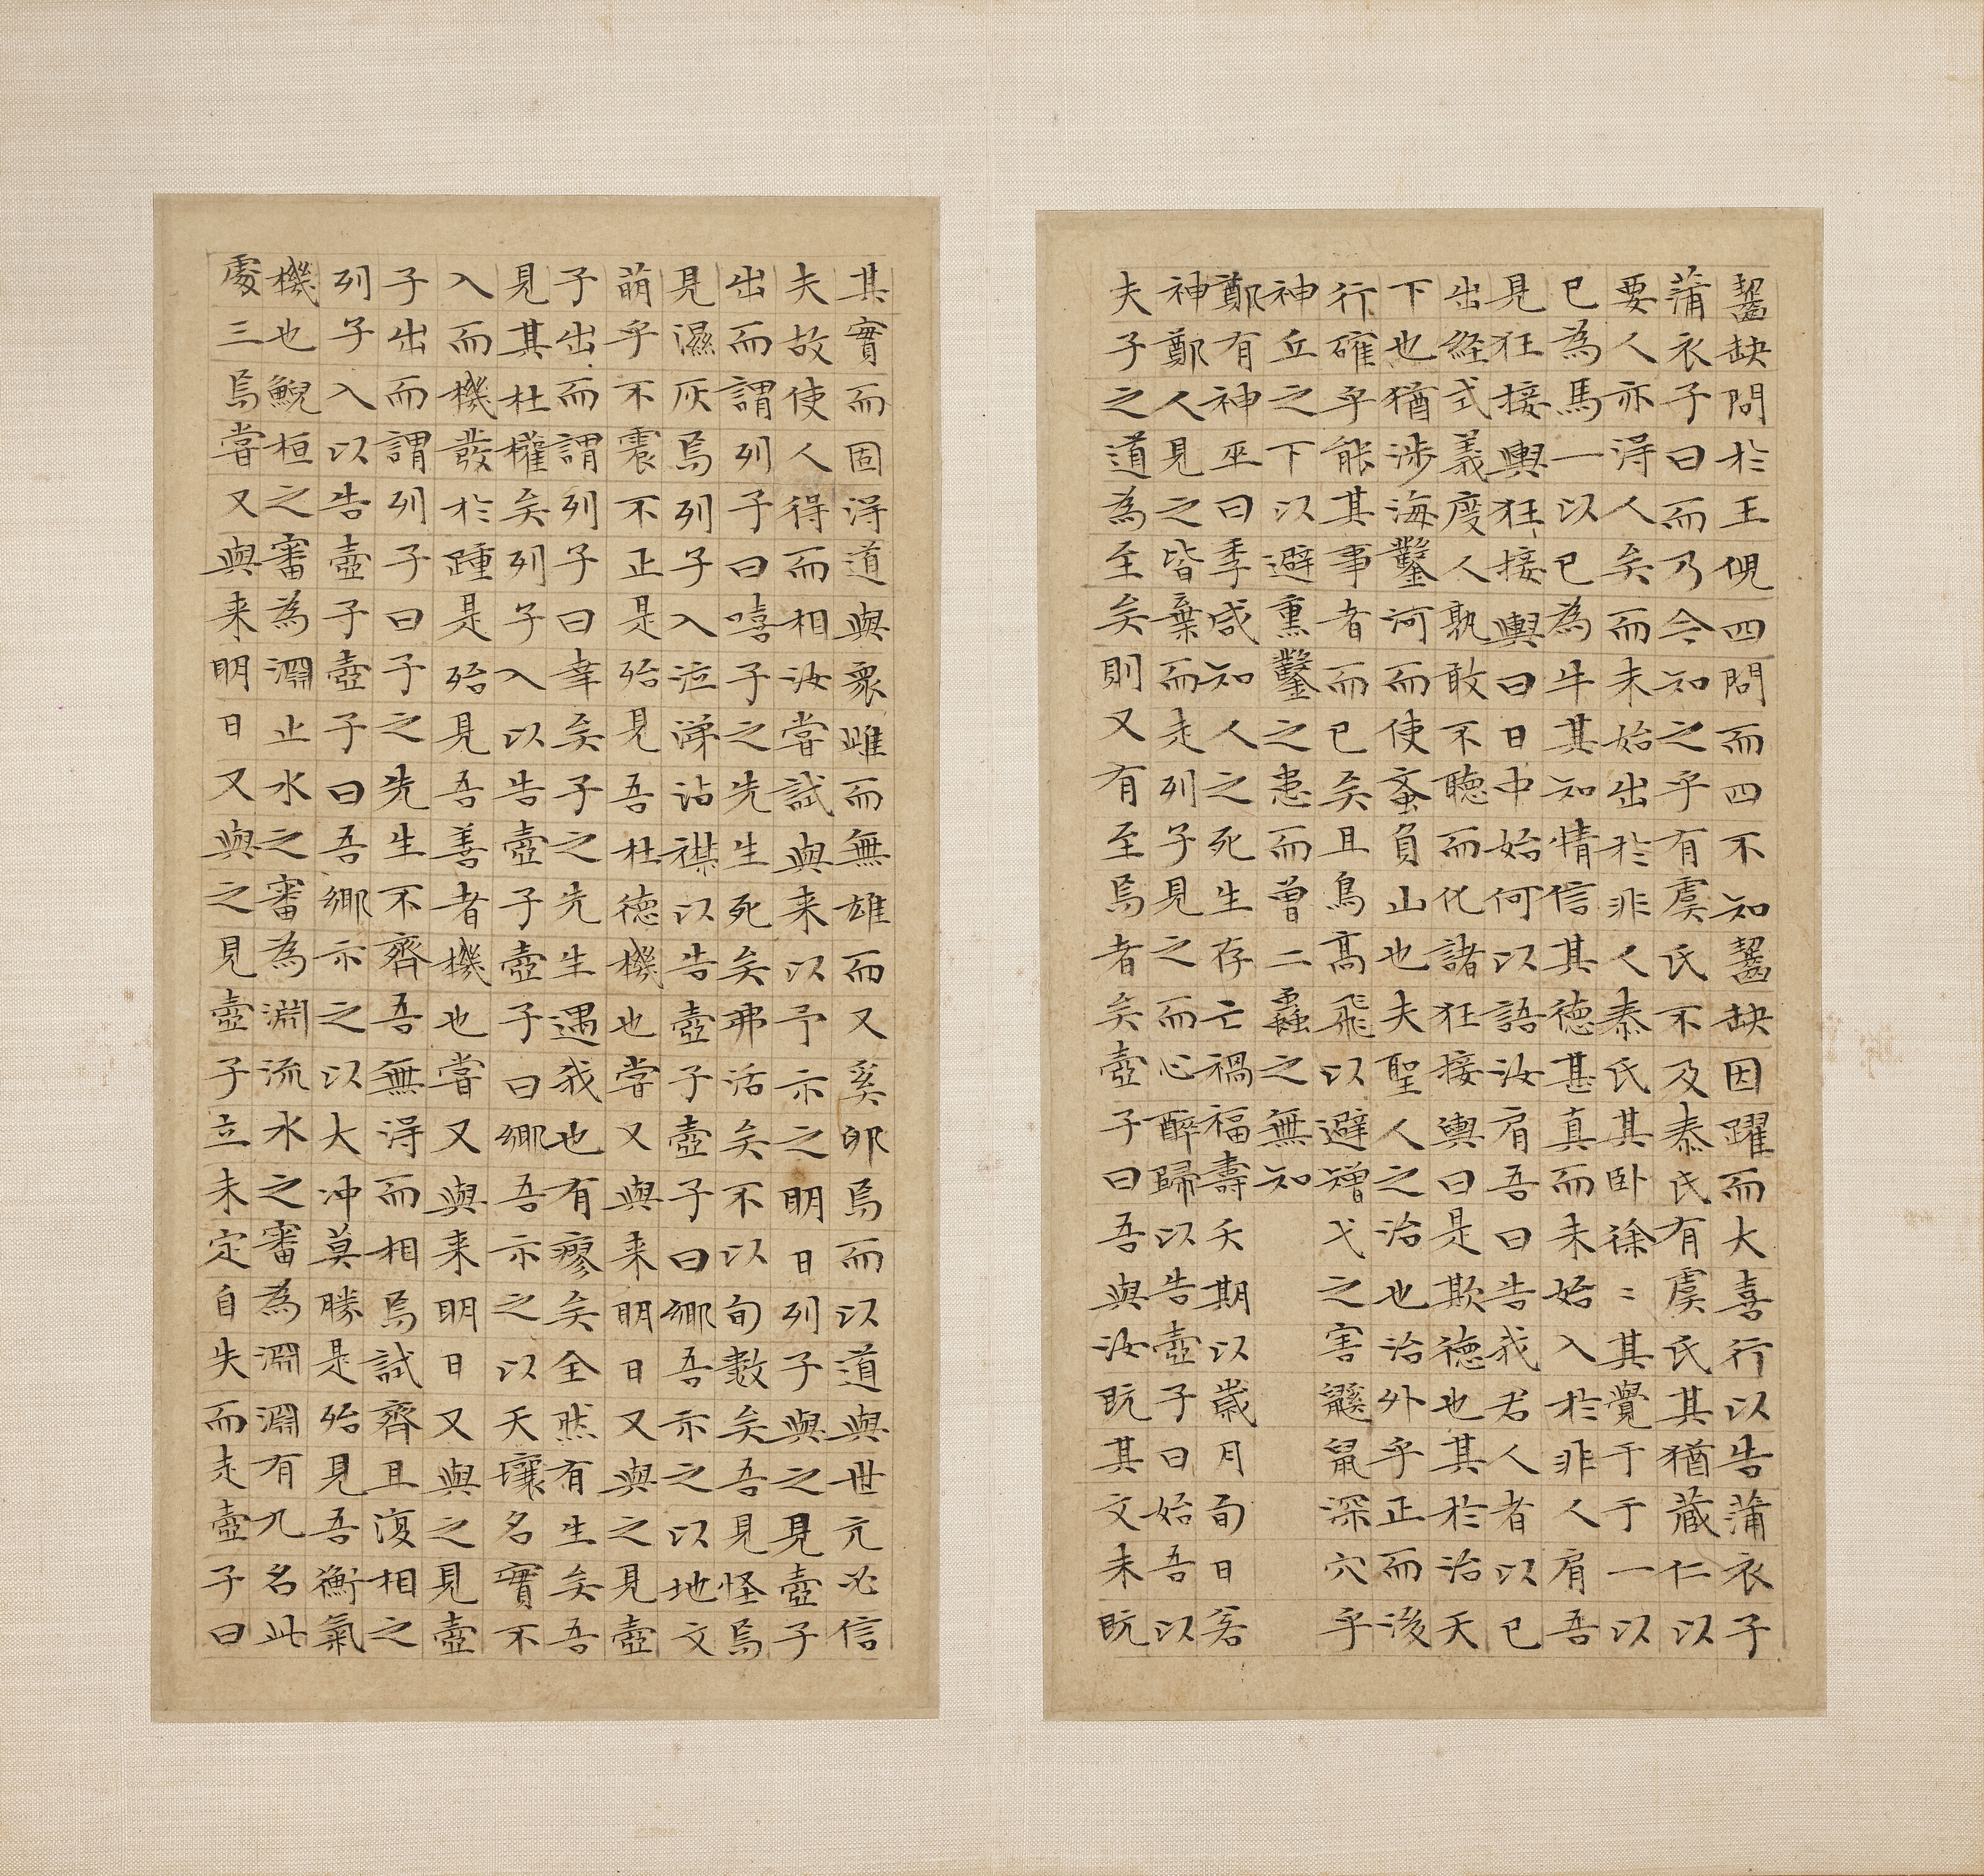 齧缺問於王倪四問而四不知齧缺因躍而大喜行以告蒲衣子
蒲衣子曰而乃今知之乎有虞氏不及泰氏有虞氏其猶藏仁以
要人亦得人矣而未始出於非人泰氏其卧徐〻其覺于于一以
已為馬一以已為牛其知情信其德甚真而未始入於非人肩吾
見狂接輿狂接輿曰日中始何以語汝肩吾曰告我君人者以已
出経式義度人孰敢不聽而化諸狂接輿曰是欺德也其於治天
下也猶涉海鑿河而使蚉負山也夫聖人之治也治外乎正而後
行確乎能其事者而已矣且鳥高飛以避矰弋之害鼷鼠深穴乎
神丘之下以避熏鑿之患而曾二蟲之無知
鄭有神巫曰季咸知人之死生存亡禍福壽夭期以歲月旬日若
神鄭人見之皆棄而走列子見之而心醉歸以告壺子曰始吾以
夫子之道為至矣則又有至焉者矣壺子曰吾與汝既其文未既
其實而固得道與衆雌而無雄而又奚卵焉而以道與世亢必信
夫故使人得而相汝嘗試與来以予示之明日列子與之見壺子
出而謂列子曰嘻子之先生死矣弗活矣不以旬數矣吾見怪焉
見濕灰焉列子入泣涕沾襟以告壺子壺子曰鄉吾示之以地文
萌乎不震不正是殆見吾杜德機也嘗又與来明日又與之見壺
子出而謂列子曰幸矣子之先生遇我也有瘳矣全然有生矣吾
見其杜權矣列子入以告壺子壺子曰鄉吾示之以天壤名實不
入而機發於踵是殆見吾善者機也嘗又與来明日又與之見壺
子出而謂列子曰子之先生不齊吾無得而相焉試齊且復相之
列子入以告壺子壺子曰吾鄉示之以大冲莫勝是殆見吾衡氣
機也鯢桓之審為淵止水之審為淵流水之審為淵淵有九名此
處三焉嘗又與来明日又與之見壺子立未定自失而走壺子曰